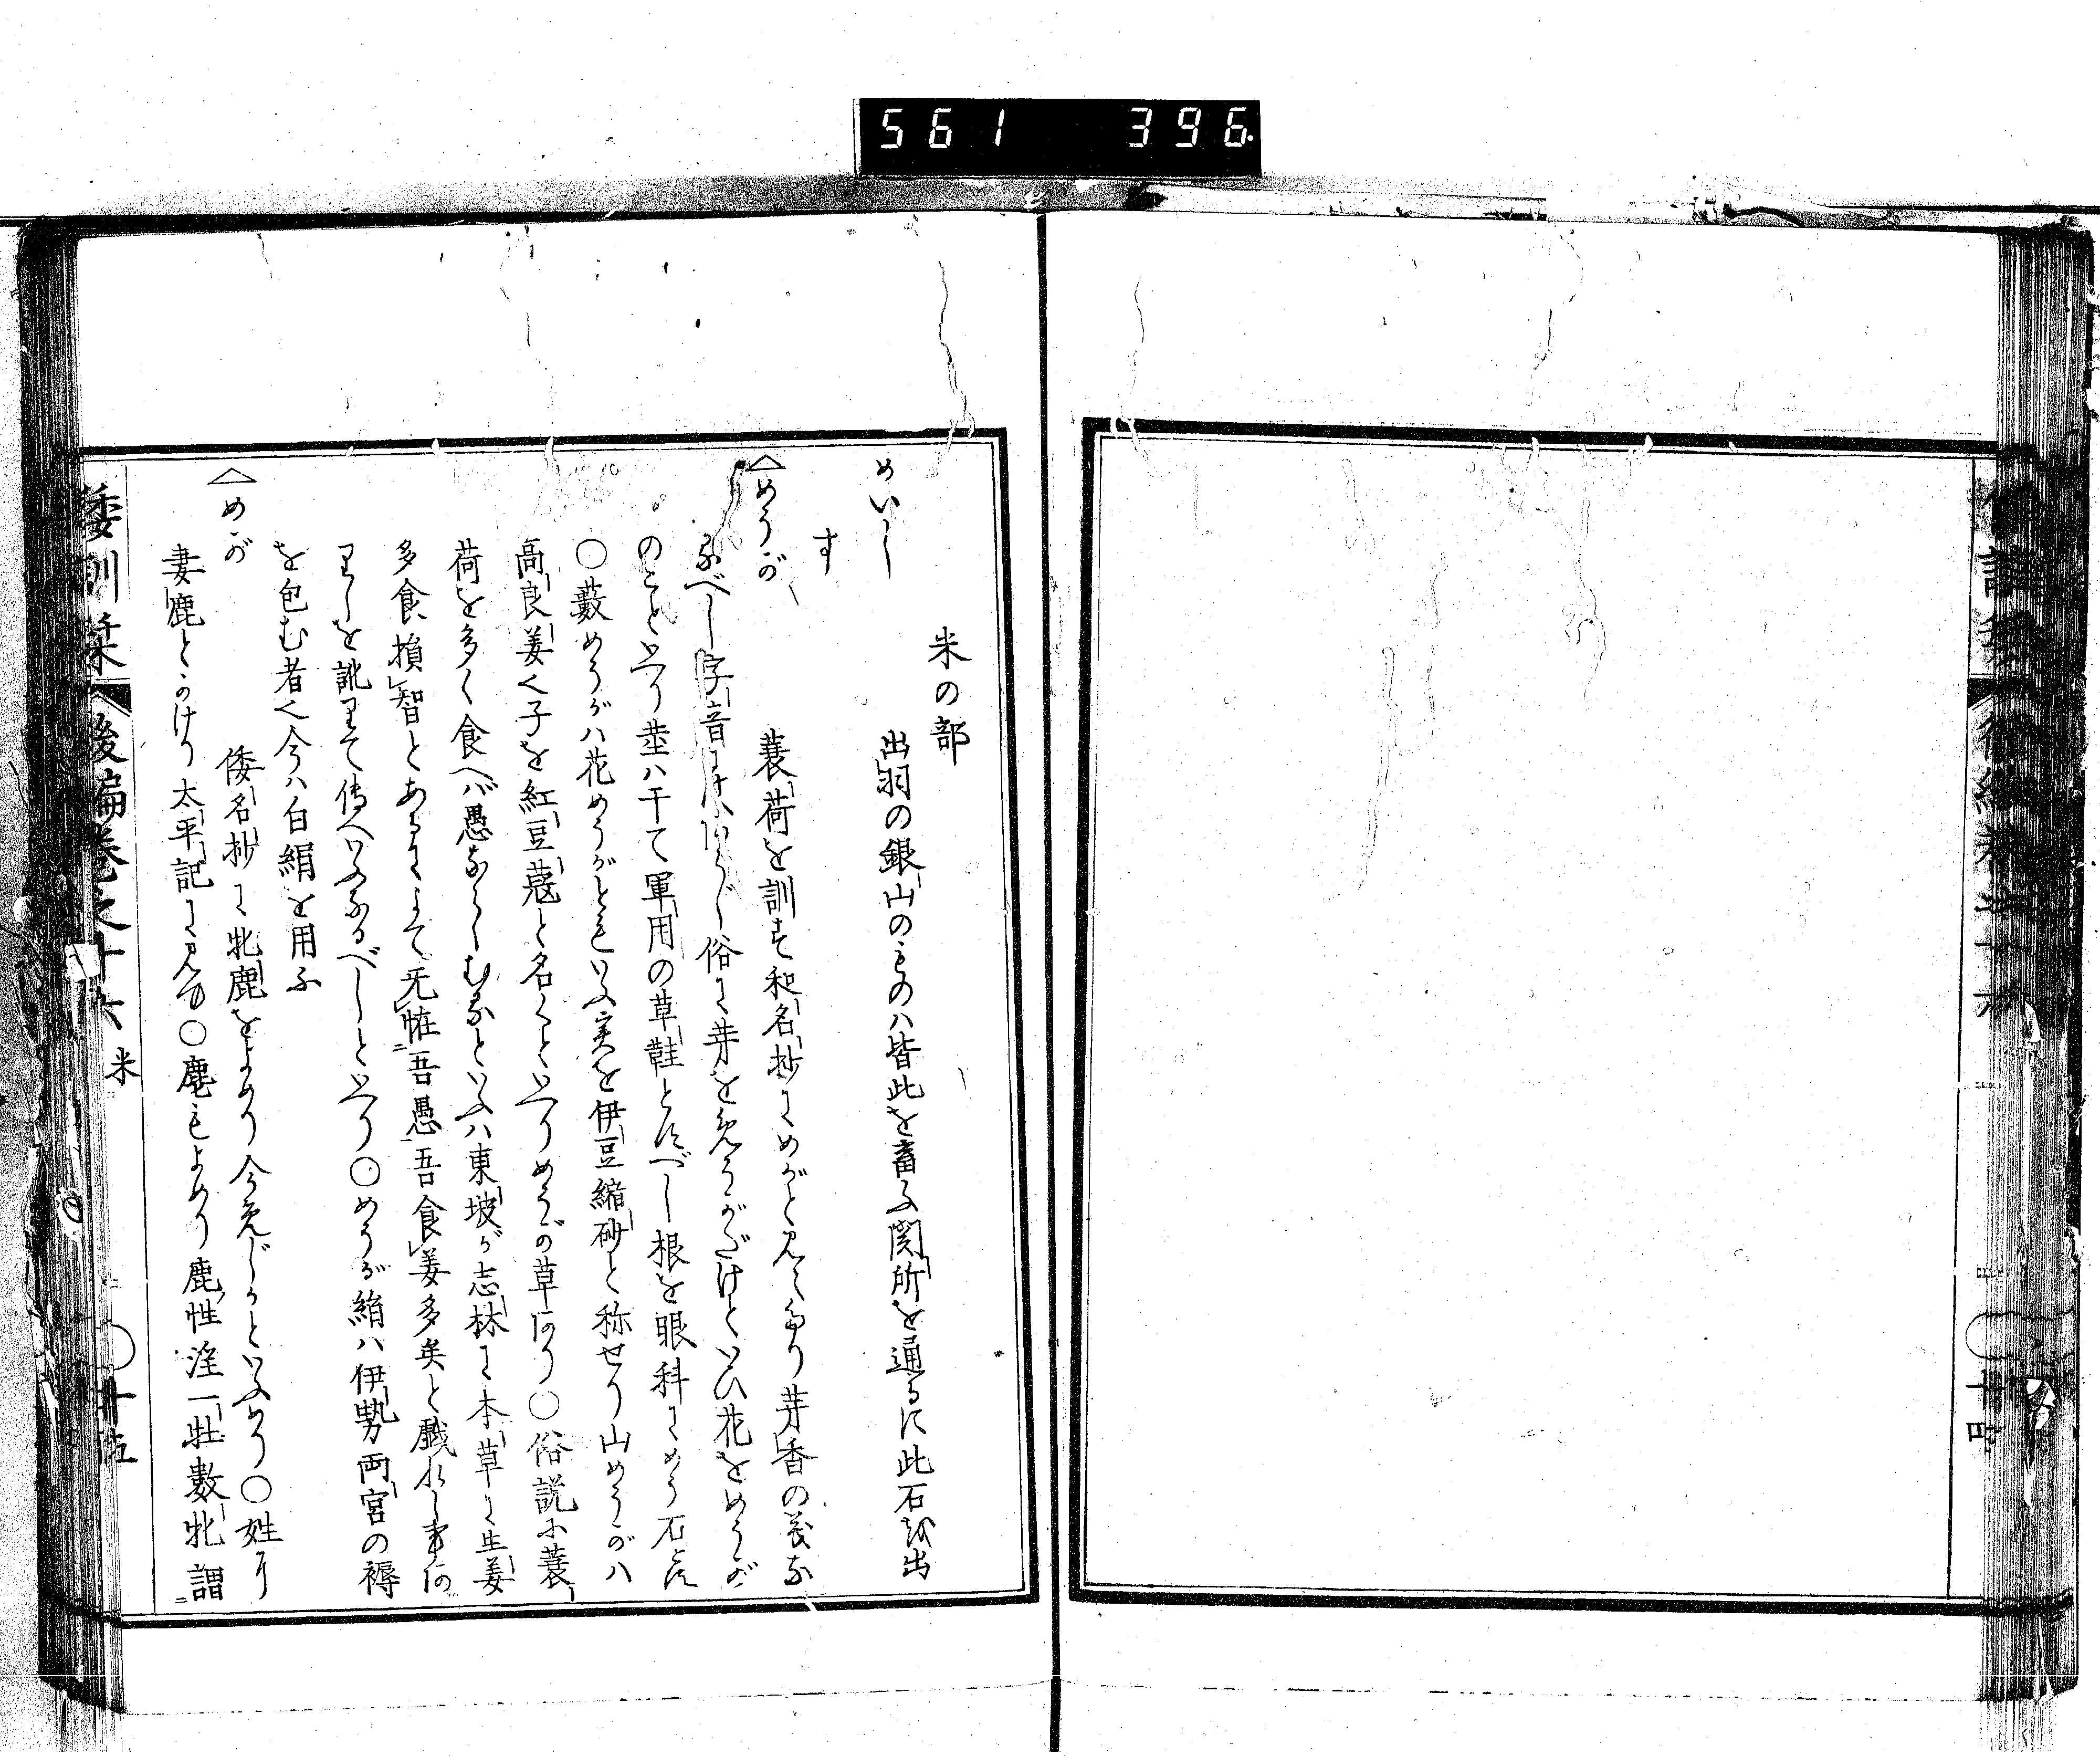 561 396
米の部
めいし 出羽の銀山のものハ皆此を畜ふ関所を通るに此石を出
す
△めうが 蘘荷を訓ず和名抄にめがと見えたり芽香の義な
るべし字音にハあらじ俗に芽を めうがだけといひ花をめうが
のことといへり茎ハ干て軍用の草鞋とすべし根を眼科にめう石とす
○藪めうがハ花めうがともいふ実を伊豆縮砂と称せり山めうがハ
高良姜く子を紅豆蔲と名くといへりめうがの草あり○俗説に蘘
荷を多く食へバ愚ならしむるといふハ東坡が志林に本草に生姜
多食損智とあるによて无恠吾愚吾食姜多矣と戯れし事あ
りしを訛りて傳へいふなるべしといへり○めうが絹ハ伊勢両宮の褥
を包む者く今ハ白絹を用ふ
△めが 倭名抄に牝鹿をよめり今めじかといふめり○姓に
妻鹿とかけり太平記に見ゆ○麀もよめり鹿性淫一牡数牝謂
倭訓栞 後編巻之十六 米 ○十五
○十四